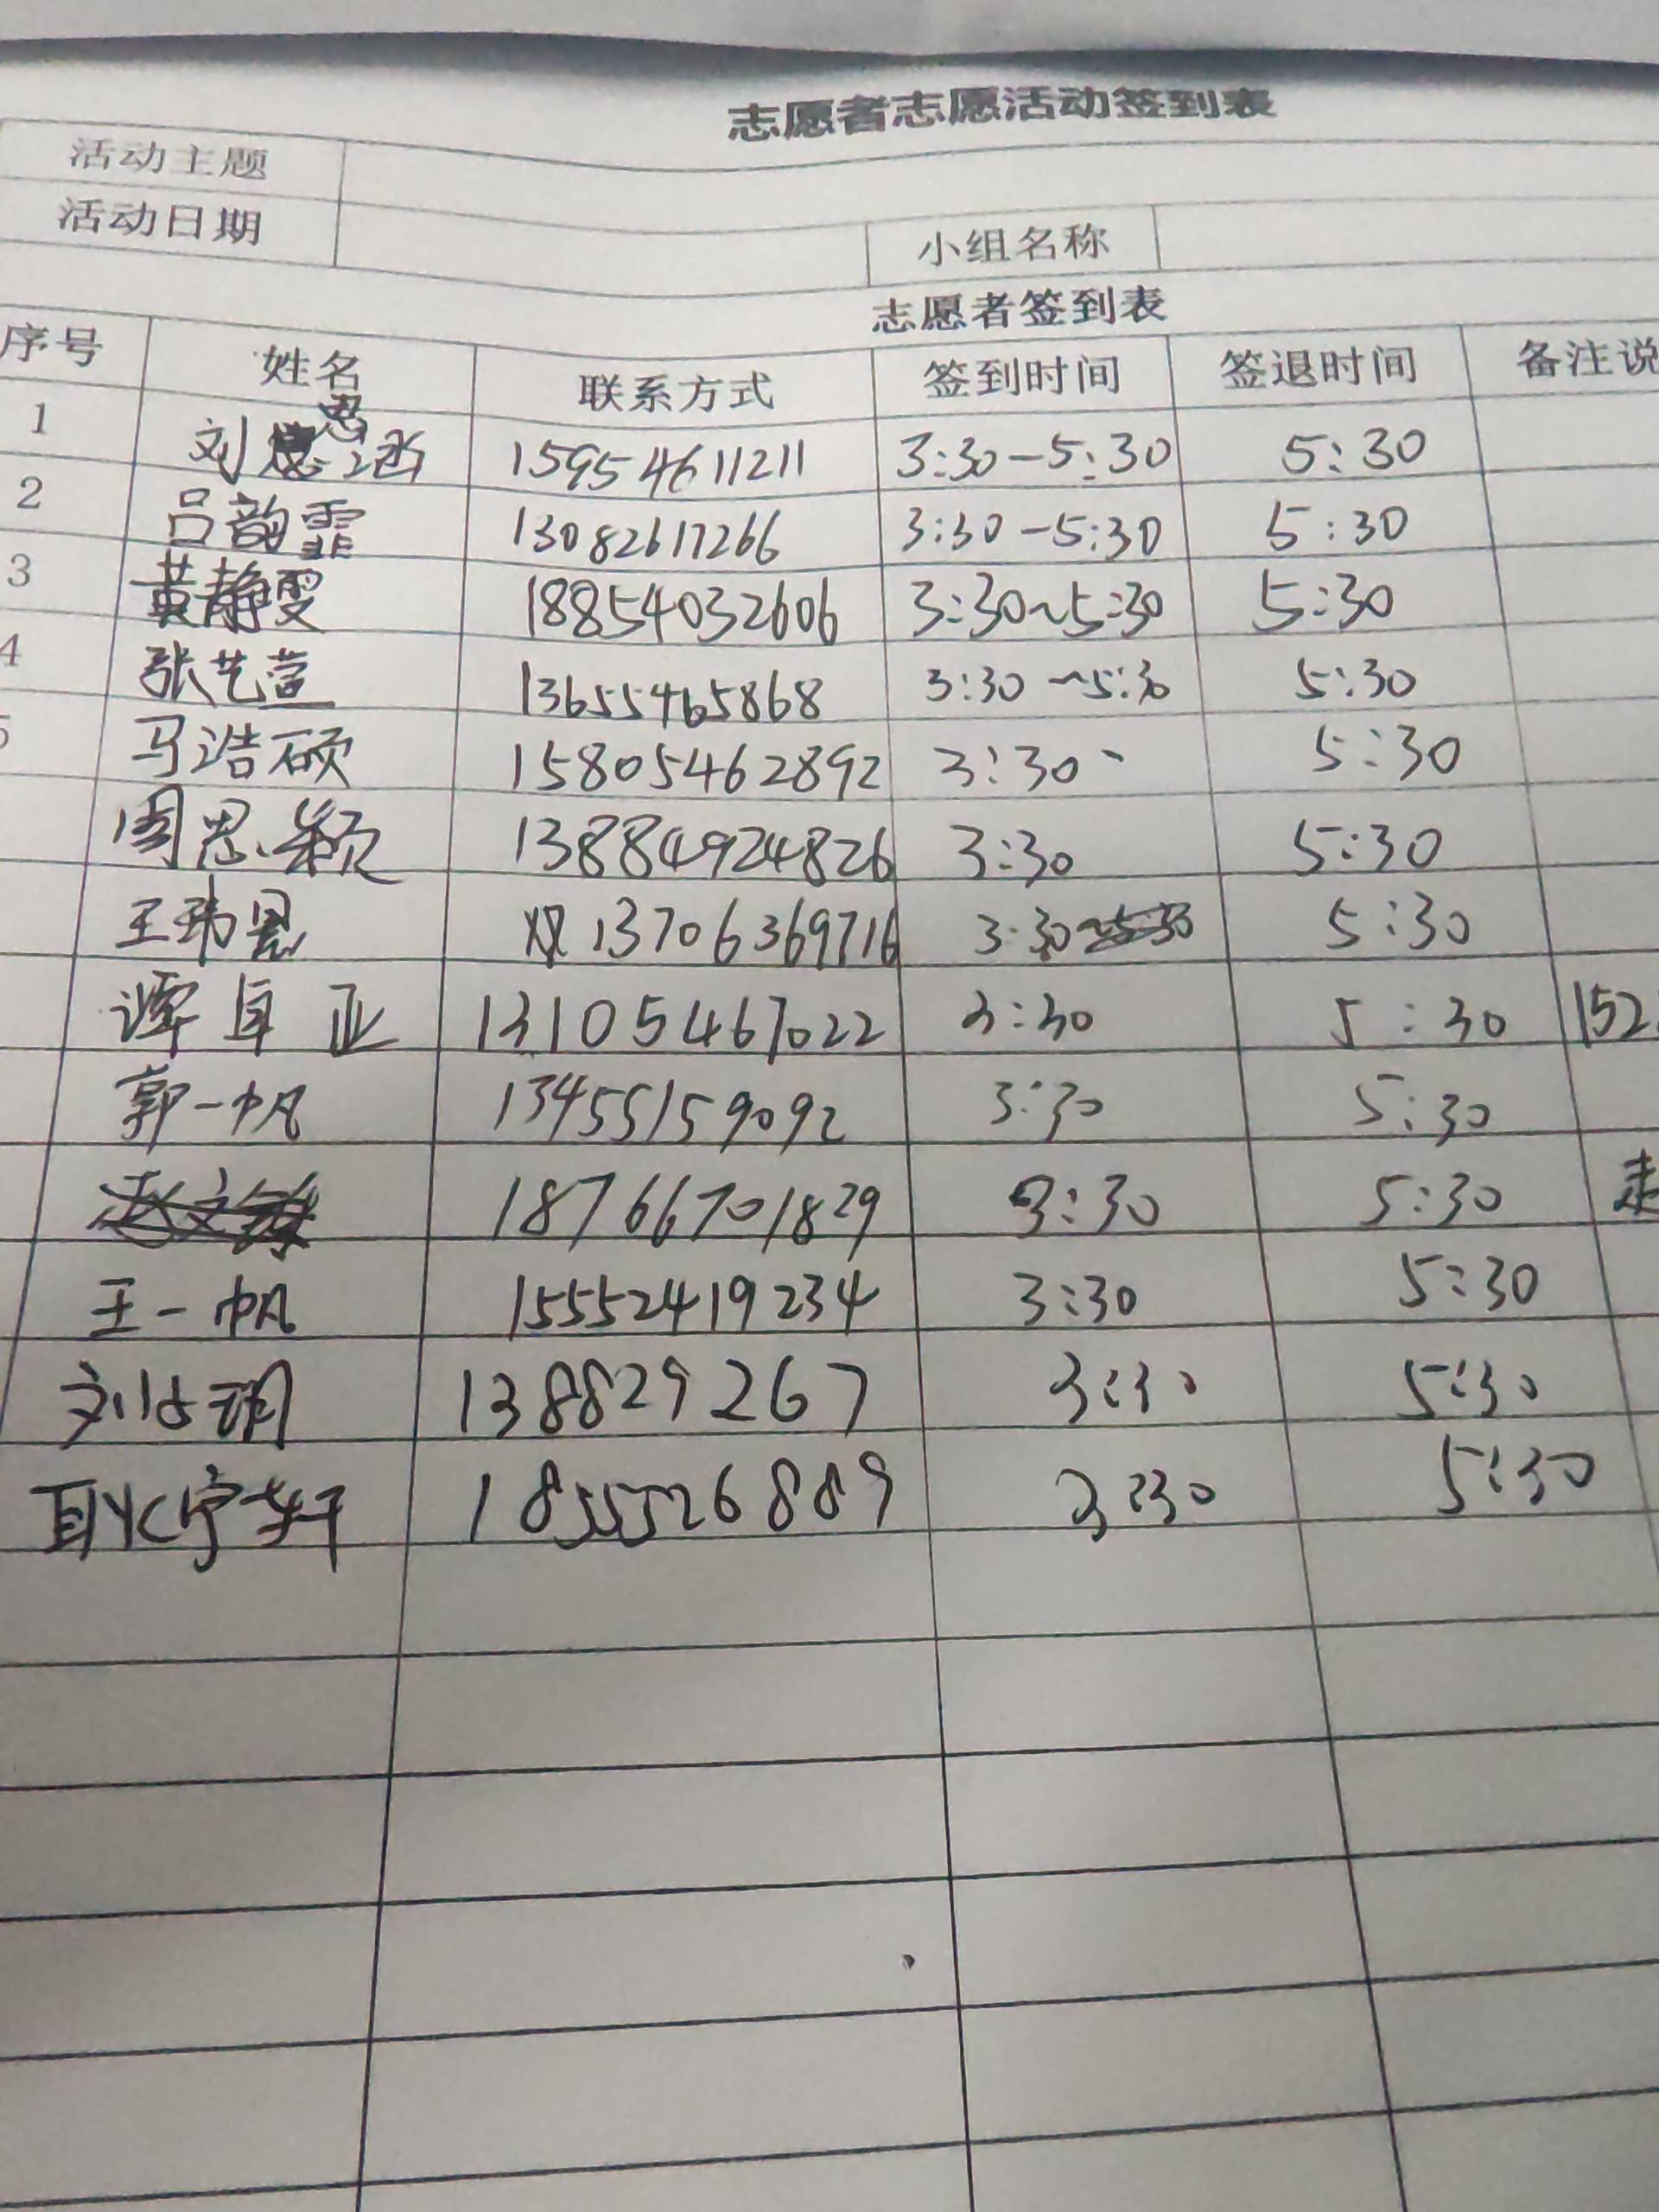 志愿者志愿活动签到表
活动主题
活动日期 小组名称
志愿者签到表
序号 姓名 联系方式 签到时间 签退时间 备注说
1 刘思涵 15954611211 3:30-5:30 5:30
2 吕韵霏 13082617266 3:30-5:30 5:30
3 黄静雯 18854032606 3:30~5:30 5:30
4 张艺萱 13655465868 3:30~5:30 5:30
5 马浩硕 15805462892 3:30 5:30
周思颖 13884924826 3:30 5:30
王玮 13706369716 3:30 5:30
谭卓亚 13105467022 3:30 5:30 152
郭一帆 13455159092 3:30 5:30
18766701829 3:30 5:30
王一帆 15552419234 3:30 5:30
刘 138829267 3:30 5:30
耿宁轩 1855526889 3:30 5:30